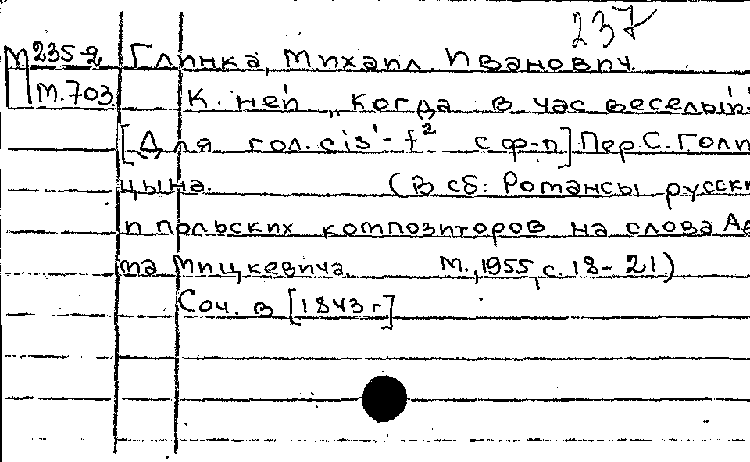 237
М 235-2 Глинка, Михаил Иванович.
М.703 К ней „Когда в час веселый
[Для гол. cis¹-f² с ф-п] Пер. С. Голи
цына. (В сб: Романсы русски
и польских композиторов на слова Ада
ма Мицкевича. М., 1955, с. 18-21)
Соч. в [1843 г]